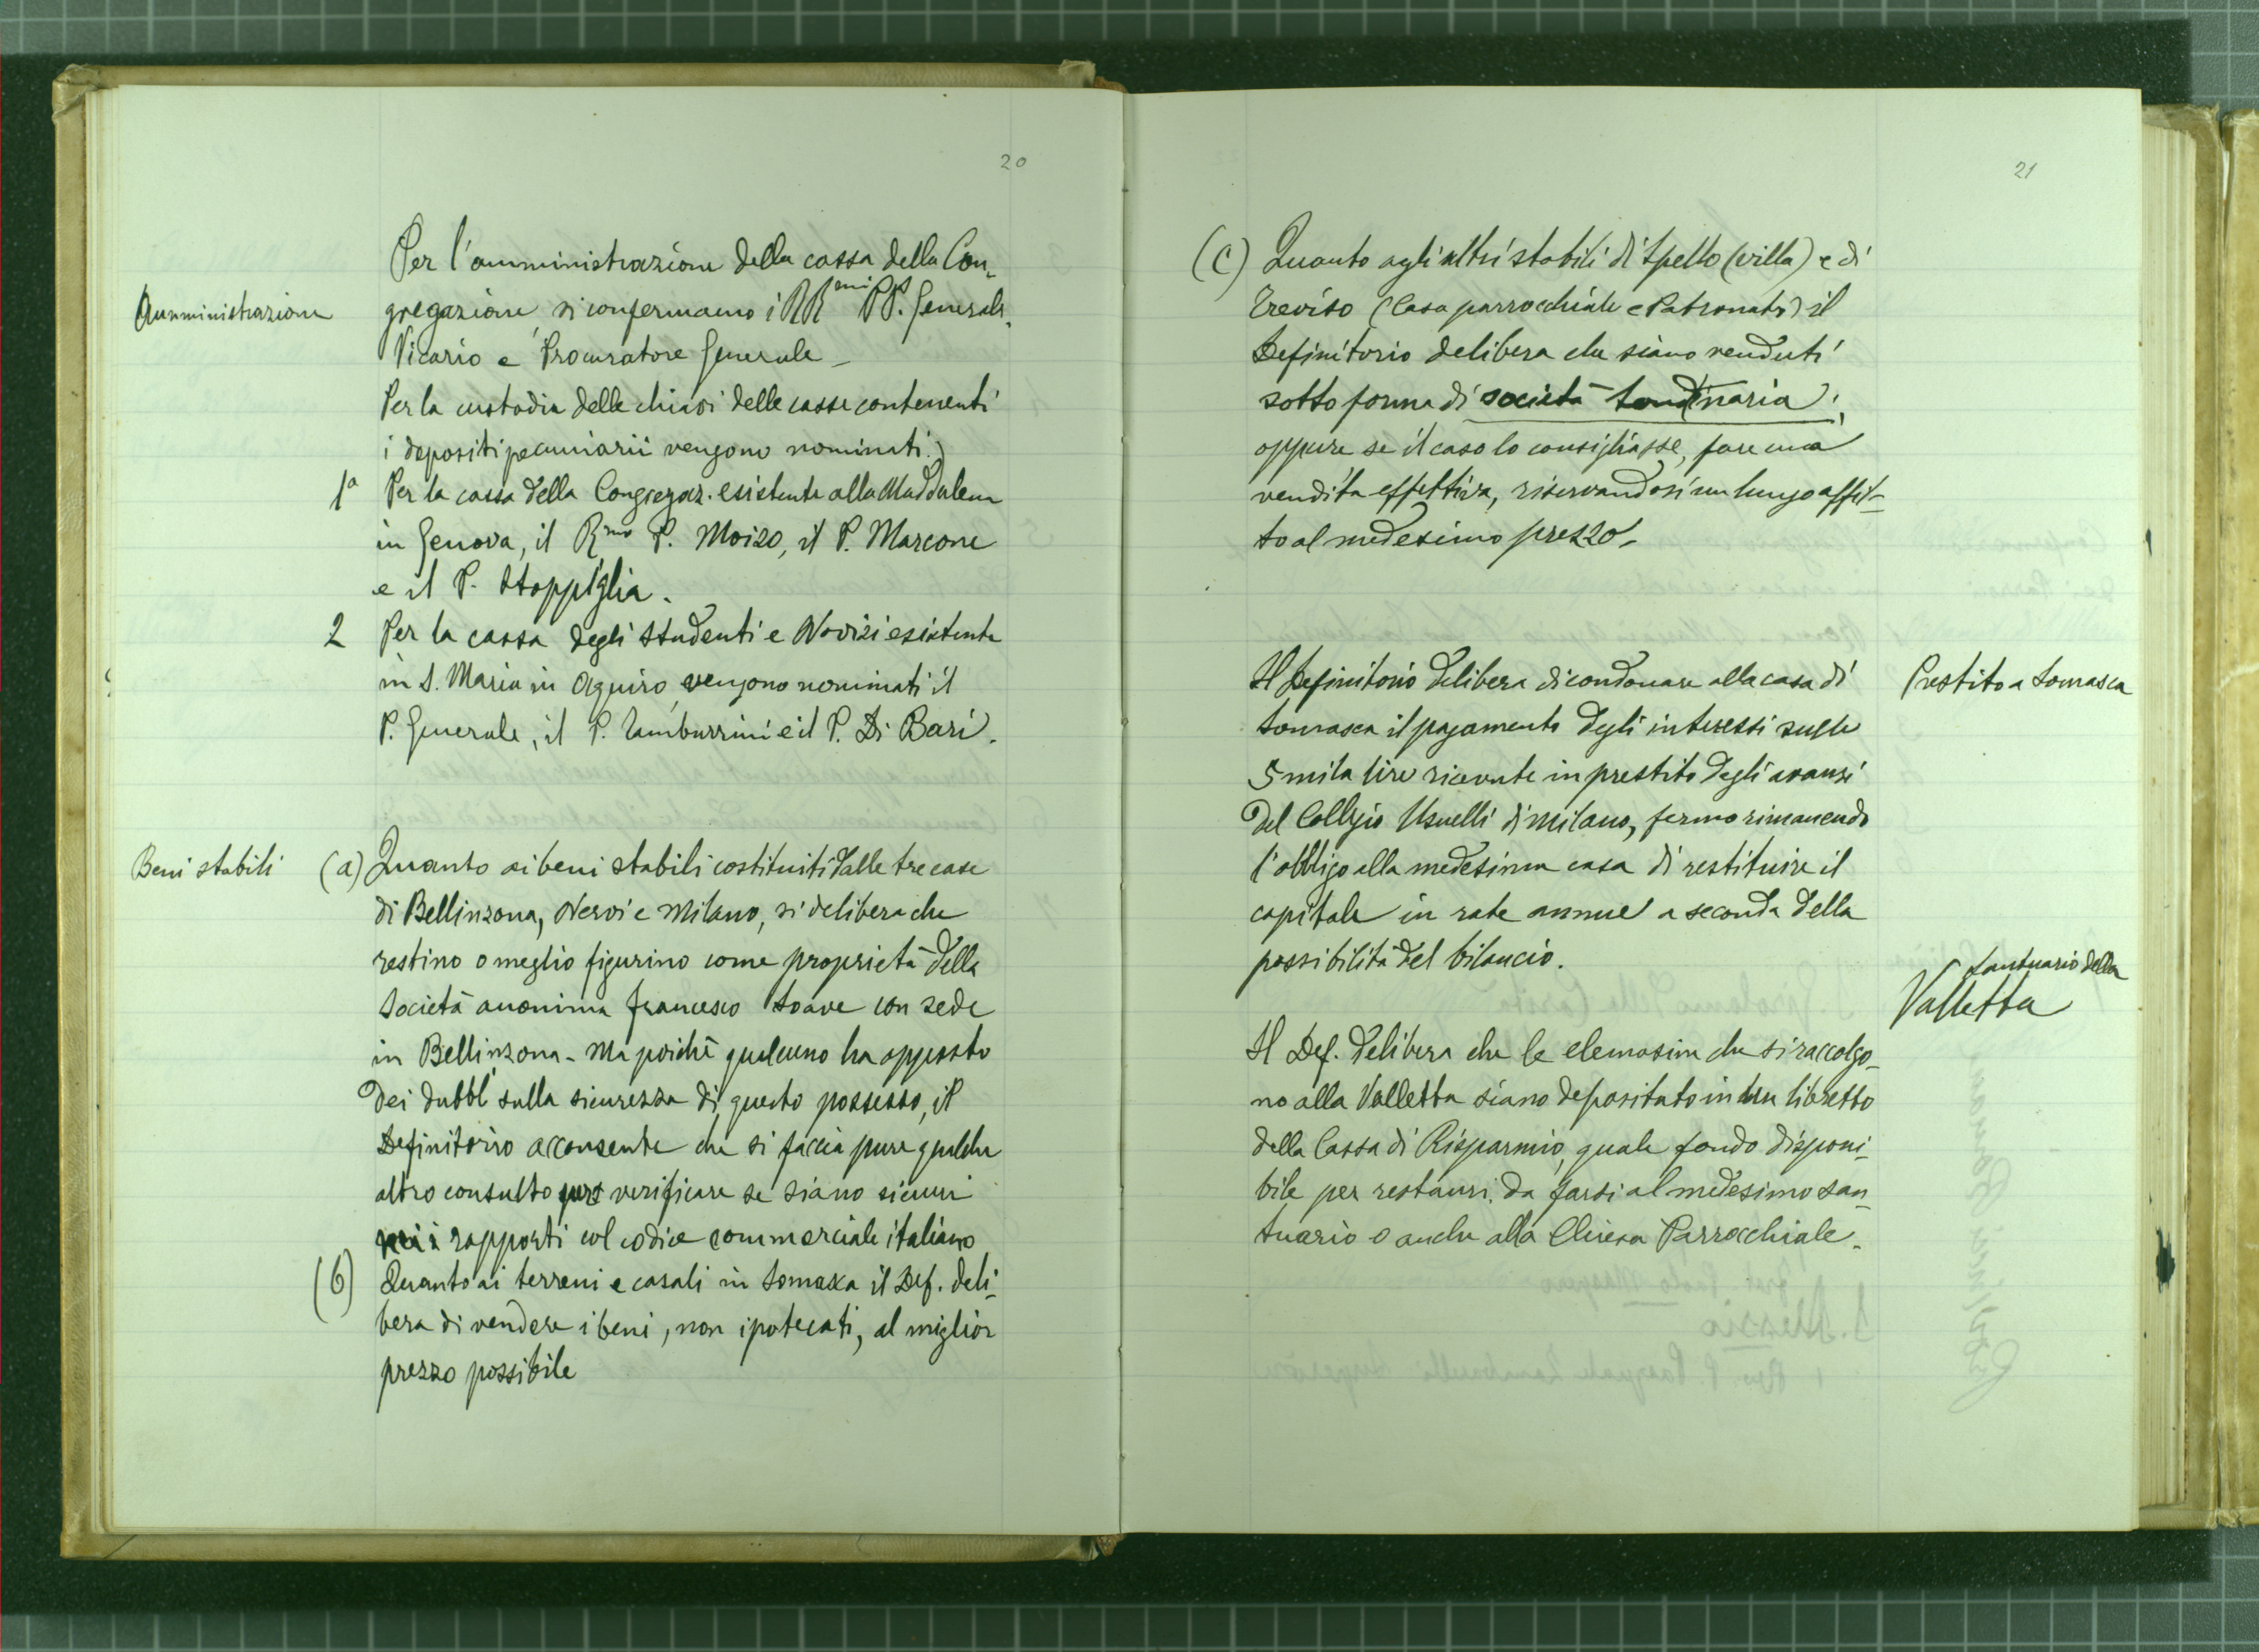 20
Per l'amministrazione della cassa della Con-
Amministrazione
gregazione, si confermano i RR.mi PP. Generale,
Vicario e Procuratore Generale -
Per la custodia delle chiavi delle casse contenenti
i depositi pecuniarii vengono nominati:
1a Per la cassa della Congregaz. esistente alla Maddalena
in Genova, il R.mo P. Moizo, il P. Marcone
e il P. Stoppiglia.
2 Per la cassa degli Studenti e Novizi esistente
in S. Maria in Aquiro, vengono nominati il
P. Generale, il P. Tamburrini e il P. Di Bari.
Beni stabili
(a) Quanto ai beni stabili costituiti dalle tre case
di Bellinzona, Nervi e Milano, si delibera che
restino o meglio figurino come proprietà della
Società anonima Francesco Soave con sede
in Bellinzona - Ma poichè qualcuno ha opposto
dei dubbi sulla sicurezza di questo possesso, il
Definitorio acconsente che si faccia pure qualche
altro consulto per verificare se siano sicuri
i rapporti col codice commerciale italiano
(b) Quanto ai terreni e casali in Somasca il Def. deli-
bera di vendere i beni, non ipotecati, al miglior
prezzo possibile
21
(c) Quanto agli altri stabili di Spello (villa) e di
Treviso (Casa parrocchiale e Patronato) il
Definitorio delibera che siano venduti
sotto forma di società
oppure se il caso lo consigliasse, fare una
vendita effettiva, riservandosi un lungo affit-
to al medesimo prezzo -
Prestito a Somasca
Il Definitorio delibera di condonare alla casa di
Somasca il pagamento degli interessi sulle
5 mila lire ricevute in prestito degli avanzi
del Collegio Usuelli di Milano, fermo rimanendo
l'obbligo alla medesima casa di restituire il
capitale in rate annue a seconda della
possibilità del bilancio.
Santuario della
Valletta
Il Def. delibera che le elemosine che si raccolgo-
no alla Valletta siano depositato in un libretto
della Cassa di Risparmio, quale fondo disponi-
bile per restauri da farsi al medesimo san-
tuario o anche alla Chiesa Parrocchiale -